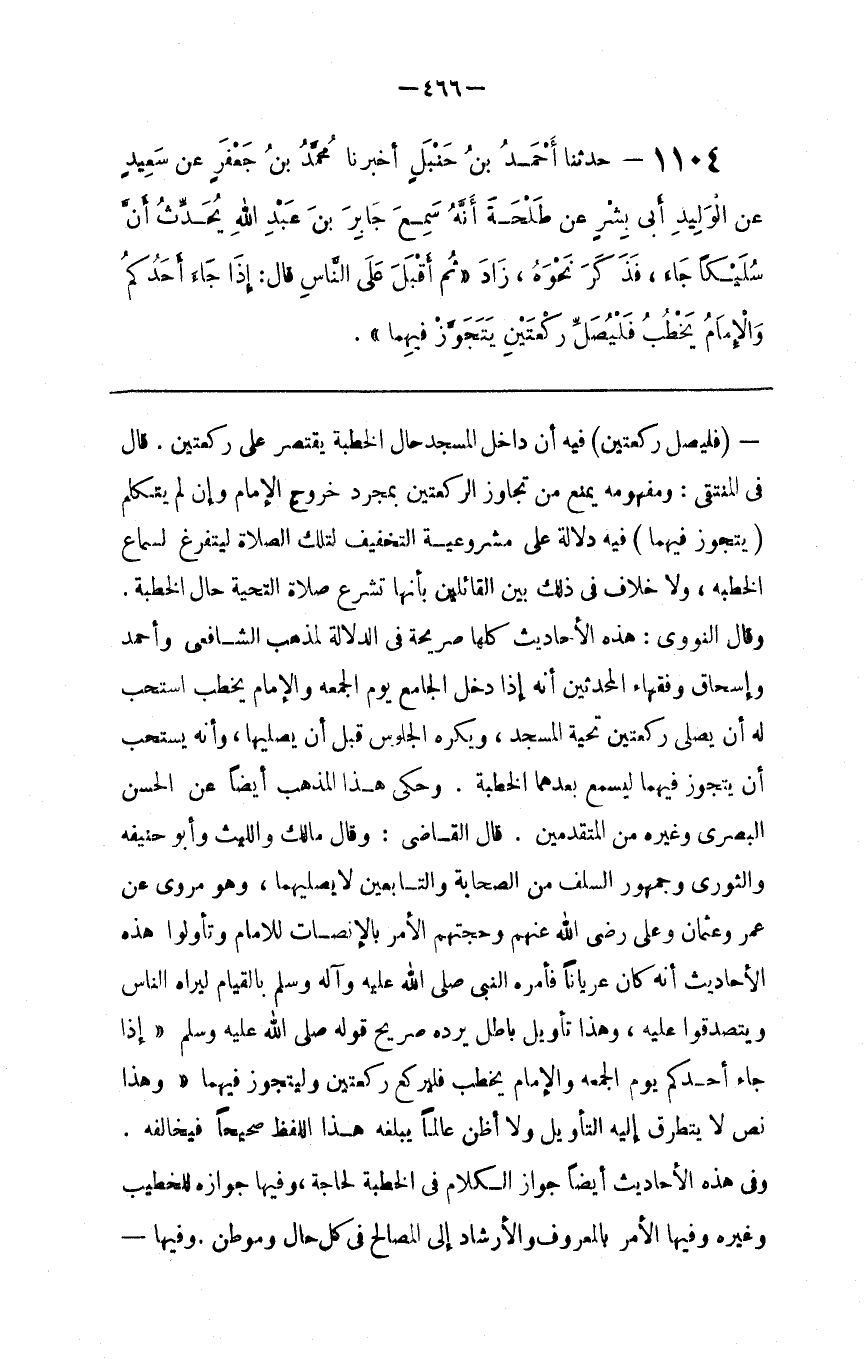 —٤٦٦—
١١٠٤ — حدثنا أَحْمَـدُ بنُ حَنْبَلٍ أخبرنا مُحمَّدُ بنُ جَعْفَرٍ عن سَعِيدٍ
عن الْوَلِيدِ أَبى بِشْرٍ عن طَلْحَـةَ أَنَّهُ سَمِـعَ جَابِرَ بنَ عَبْدِ اللهِ يُحَـدِّثُ أَنَّ
سُلَيْـكاً جَاء ، فَذَ كَرَ نَحْوَهُ ، زَادَ «ثُم أَقْبَلَ عَلَى النَّاسِ قال: إِذَا جَاءَ أَحَدُكمُ
وَالْإِمَامُ يَخْطُبُ فَلْيُصَلِّ رَكْعَتَيْنِ يَتَجَوَّزْ فيهِما » .
— (فليصل ركعتين) فيه أن داخل المسجد حال الخطبة يقتصر على ركعتين . قال
فى المنتقى : ومفهومه يمنع من تجاوز الركعتين بمجرد خروج الإمام وإن لم يتكلم
( يتجوز فيهما ) فيه دلالة على مشروعيـة التخفيف لتلك الصلاة ليتفرغ لسماع
الخطبه ، ولا خلاف فى ذلك بين القائلين بأنها تشرع صلاة التحية حال الخطبة .
وقال النووى : هذه الأحاديث كلها صريحة فى الدلالة لمذهب الشـافعى وأحمد
وإسحاق وفقهاء المحدثين أنه إذا دخل الجامع يوم الجمعه والإمام يخطب استحب
له أن يصلى ركعتين تحية المسجد ، ويكره الجلوس قبل أن يصليها ، وأنه يستحب
أن يتجوز فيهما ليسمع بعدهما الخطبة . وحكى هـذا المذهب أيضاً عن الحسن
البصرى وغيره من المتقدمين . قال القـاضى : وقال مالك والليث وأبو حنيفه
والثورى وجمهور السلف من الصحابة والتـابعين لايصليهما ، وهو مروى عن
عمر وعثمان وعلى رضى الله عنهم وحجتهم الأمر بالإنصـات للامام وتأولوا هذه
الأحاديث أنه كان عرياناً فأمره النبى صلى الله عليه وآله وسلم بالقيام ليراه الناس
ويتصدقوا عليه ، وهذا تأويل باطل يرده صريح قوله صلى الله عليه وسلم « إذا
جاء أحـدكم يوم الجمعه والإمام يخطب فليركع ركعتين وليتجوز فيهما « وهذا
نص لا يتطرق إليه التأويل ولا أظن عالماً يبلغه هـذا اللفظ صحيحاً فيخالفه .
وفى هذه الأحاديث أيضاً جواز الـكلام فى الخطبة لحاجة ،وفيها جوازه للخطيب
وغيره وفيها الأمر بالمعروف والأرشاد إلى المصالح فى كل حال وموطن .وفيها —